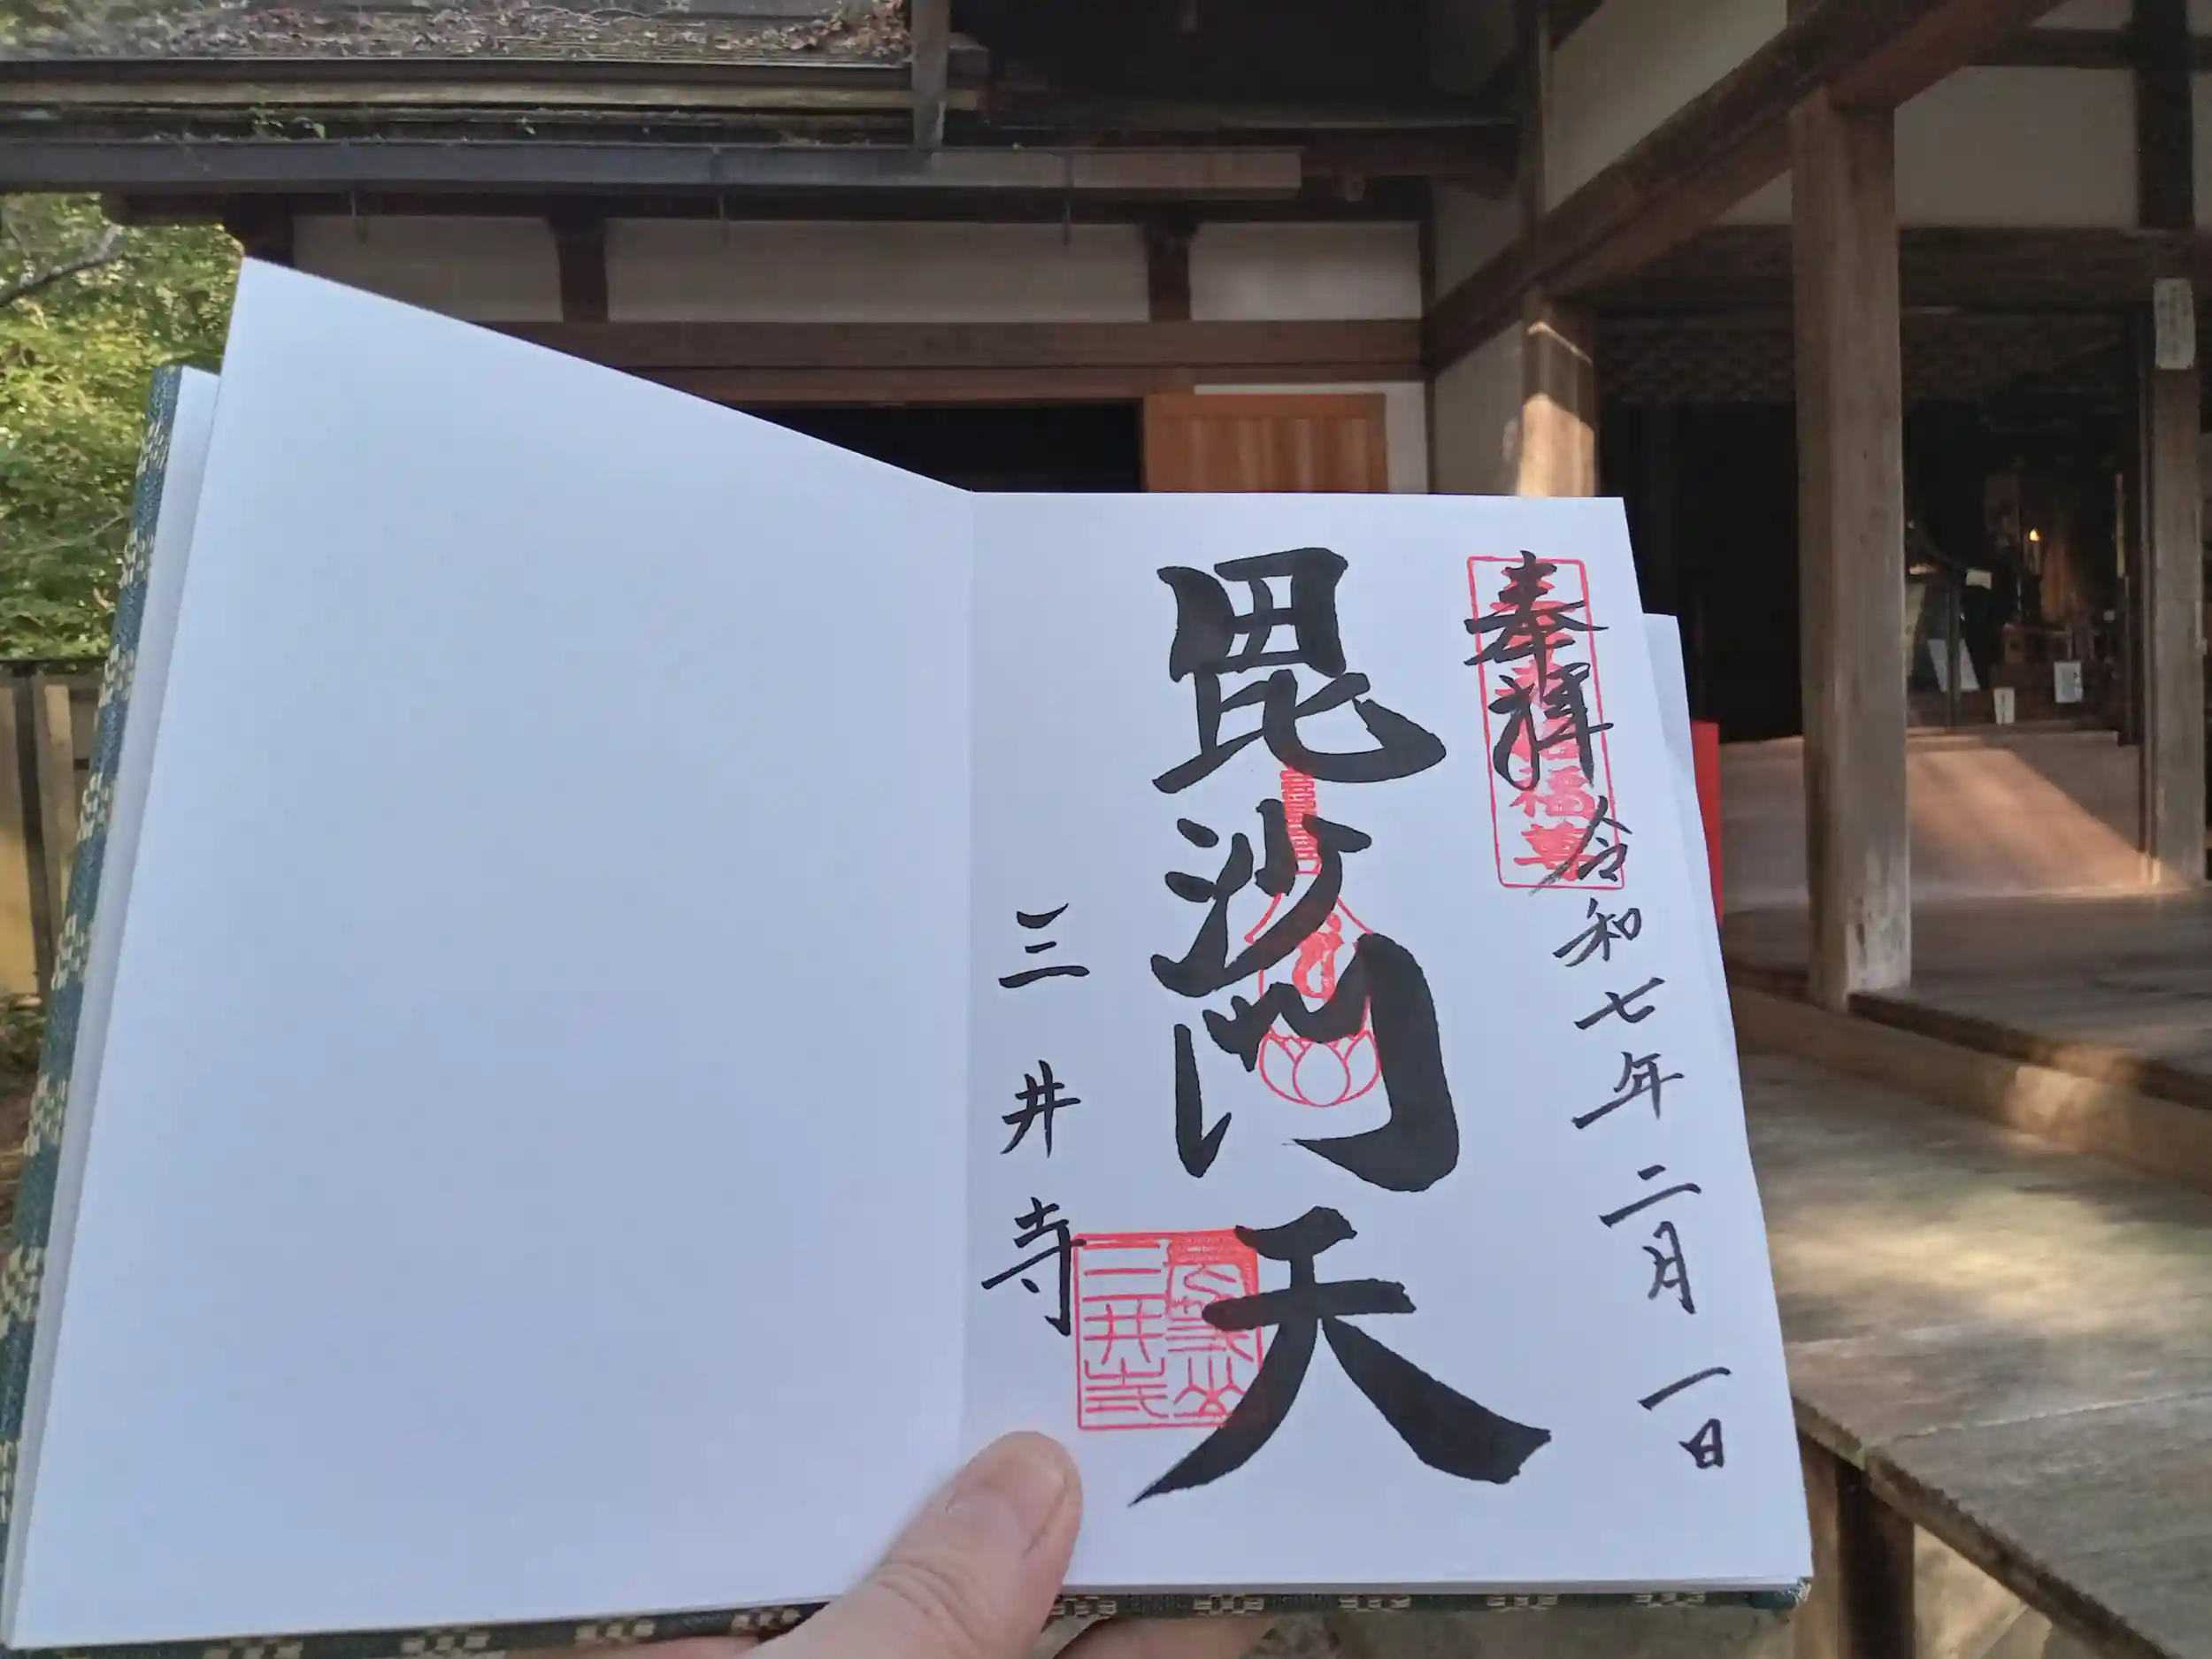 奉拝
令和七年二月一日
毘沙門天
三井寺
三井寺